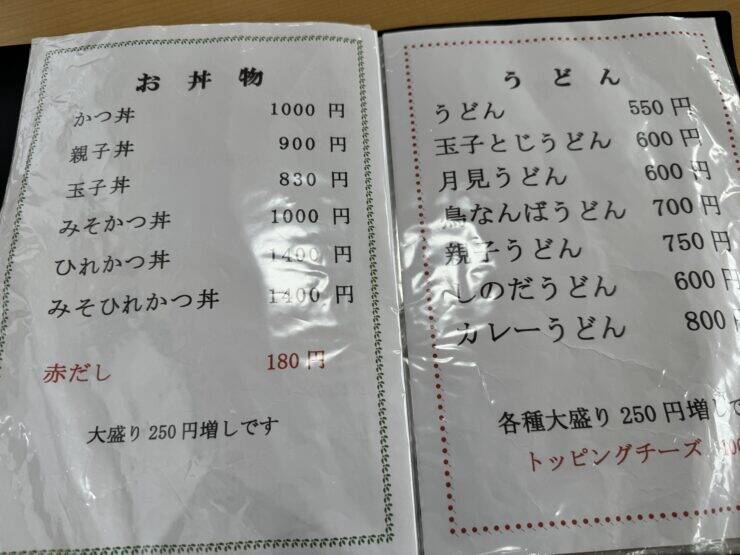 お丼物
かつ丼 1000 円
親子丼 900 円
玉子丼 830 円
みそかつ丼 1000 円
ひれかつ丼 1400 円
みそひれかつ丼 1400 円
赤だし 180 円
大盛り 250 円増しです
うどん
うどん 550 円
玉子とじうどん 600 円
月見うどん 600 円
鳥なんばうどん 700 円
親子うどん 750 円
しのだうどん 600 円
カレーうどん 800
各種大盛り 250 円増しで
トッピングチーズ